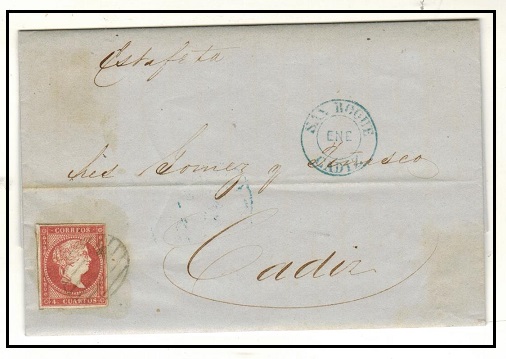 Estafeta
SAN ROQUE
ENE
CADIZ
Sres Gomez y
Cadiz
CORREOS
4 CUARTOS